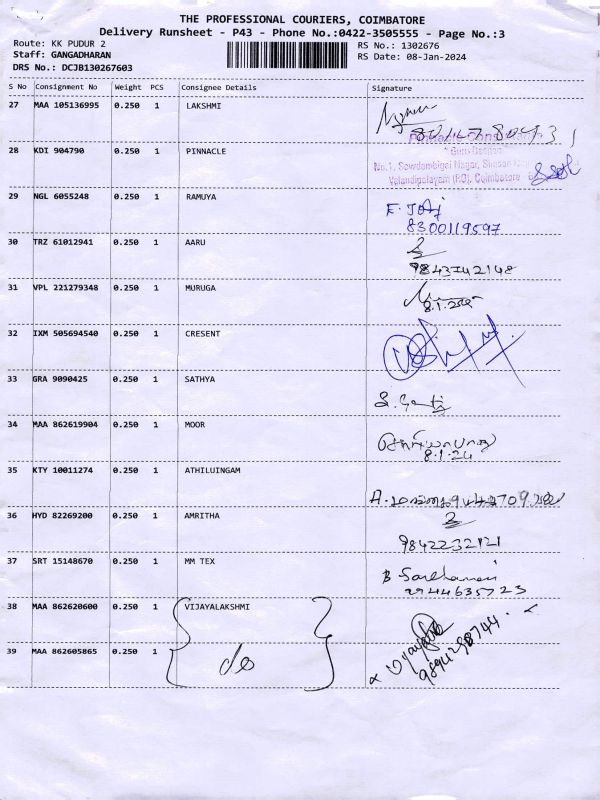 THE PROFESSIONAL COURIERS, COIMBATORE
Delivery Runsheet - P43 - Phone No.:0422-3505555 - Page No.:3
Route: KK PUDUR 2
RS No.: 1302676
Staff: GANGADHARAN
RS Date: 08-Jan-2024
DRS No.: DCJB130267603
S No Consignment No Weight PCS Consignee Details Signature
27 MAA 105136995 0.250 1 LAKSHMI
28 KDI 904790 0.250 1 PINNACLE
No.1, Sowdambigai Nagar,
Velandipalayam (PO), Coimbatore
29 NGL 6055248 0.250 1 RAMUYA
8300119597
30 TRZ 61012941 0.250 1 AARU
9843142148
31 VPL 221279348 0.250 1 MURUGA
8.1.2024
32 IXM 505694540 0.250 1 CRESENT
33 GRA 9090425 0.250 1 SATHYA
34 MAA 862619904 0.250 1 MOOR
8.1.24
35 KTY 10011274 0.250 1 ATHILUINGAM
36 HYD 82269200 0.250 1 AMRITHA
9842232121
37 SRT 15148670 0.250 1 MM TEX
38 MAA 862620600 0.250 1 VIJAYALAKSHMI
39 MAA 862605865 0.250 1 do